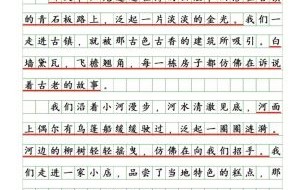 的青石板路上，泛起一片淡淡的金光。我们一
走进古镇，就被那古色古香的建筑所吸引。白
墙黛瓦，飞檐翘角，每一栋房子都仿佛在诉说
着古老的故事。
我们沿着小河漫步，河水清澈见底，河面
上偶尔有乌篷船缓缓驶过，泛起一圈圈涟漪。
河边的柳树轻轻摇曳，仿佛在向我们招手。我
们走进一家小店，品尝了当地特色的糕点，那